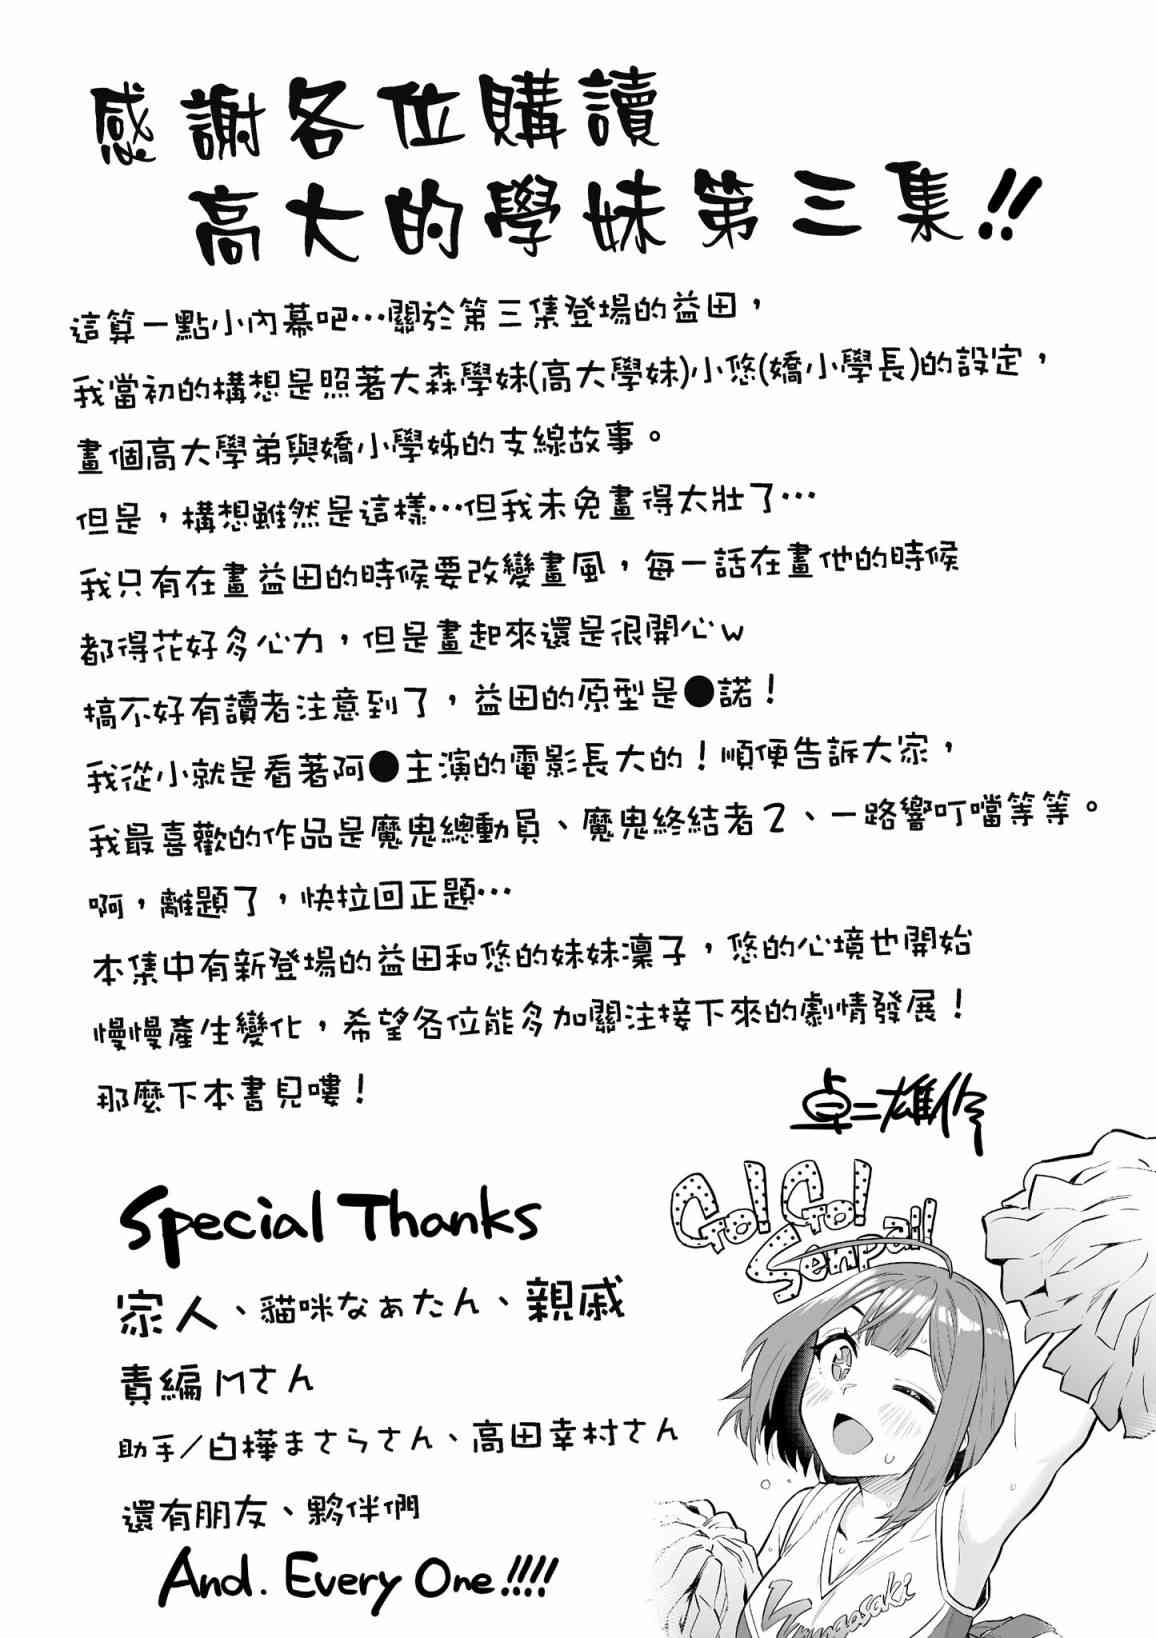 感謝各位購讀
高大的學妹第三集!!
這算一點小內幕吧…關於第三集登場的益田，
我當初的構想是照著大森學妹(高大學妹)小悠(嬌小學長)的設定，
畫個高大學弟與嬌小學姊的支線故事。
但是，構想雖然是這樣…但我未免畫得太壯了…
我只有在畫益田的時候要改變畫風，每一話在畫他的時候
都得花好多心力，但是畫起來還是很開心w
搞不好有讀者注意到了，益田的原型是●諾！
我從小就是看著阿●主演的電影長大的！順便告訴大家，
我最喜歡的作品是魔鬼總動員、魔鬼終結者2、一路響叮噹等等。
啊，離題了，快拉回正題…
本集中有新登場的益田和悠的妹妹凜子，悠的心境也開始
慢慢產生變化，希望各位能多加關注接下來的劇情發展！
那麼下本書見嘍！
卓二雄伶
Go! Go!
Senpai!!
Special Thanks
家人、貓咪なぁたん、親戚
責編Mさん
助手/白樺まさらさん、高田幸村さん
還有朋友、夥伴們
And. Every One!!!!